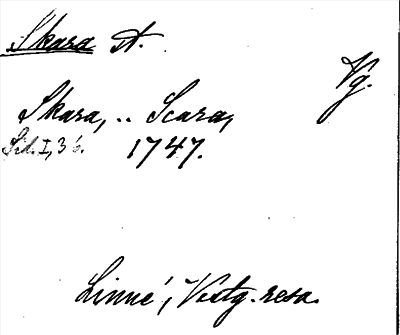 Skara st.
Vg.
Skara, .. Scara,
Sid. I, 36. 1747.
Linné, Vestg. resa.